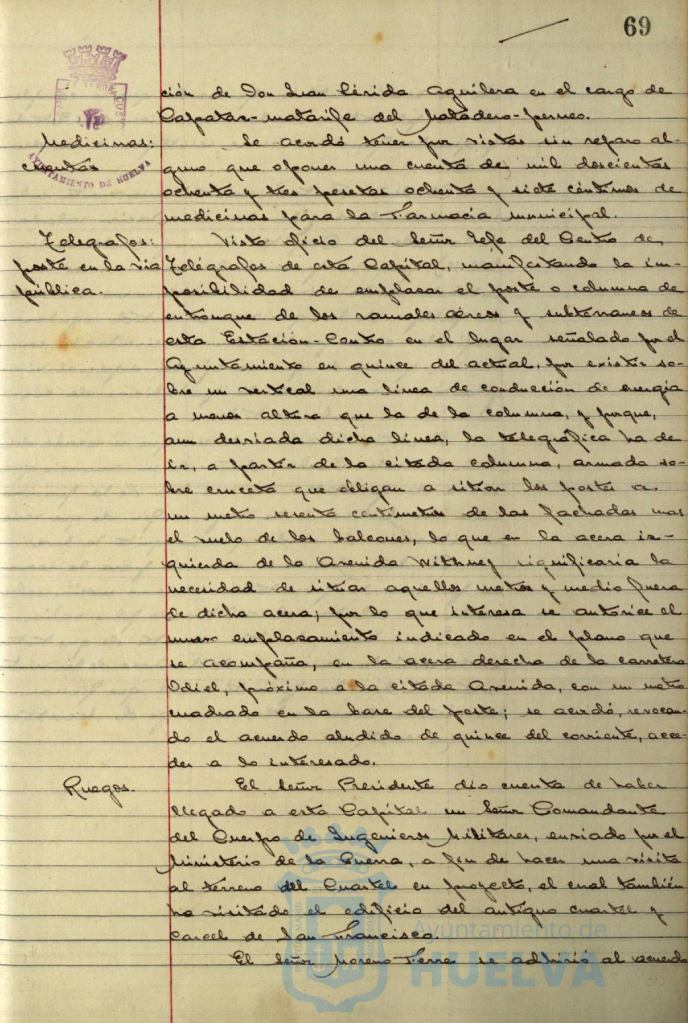 69
ción de Don Juan Cérida Aguilera en el cargo de
Capataz-matarife del Matadero-porneo.
Medicinas:
cuentas
Se acordó tener por vistas sin reparo al-
guno que oponer una cuenta de mil doscientas
ochenta y tres pesetas ochenta y siete céntimos de
medicinas para la Farmacia municipal.
Telegrafos:
poste en la via
pública.
Visto oficio del Señor Jefe del Centro de
Telégrafos de esta Capital, manifestando la im-
posibilidad de emplazar el poste o columna de
entronque de los ramales aéreos y subterraneos de
esta Estación-Centro en el lugar señalado por el
Ayuntamiento en quince del actual, por existir so-
bre un vertical una línea de conducción de energía
a menos altura que la de la columna, y porque,
aun desviada dicha línea, la telegráfica ha de
ir, a partir de la citada columna, armada so-
bre cruceta que obligan a situar los postes a
un metro sesenta centimetros de las fachadas mas
el vuelo de los balcones, lo que en la acera iz-
quierda de la Avenida Withney significaria la
necesidad de situar aquellos metro y medio fuera
de dicha acera; por lo que interesa se autorice el
emplazamiento indicado en el plano que
se acompaña, en la acera derecha de la carretera
Odiel, próximo a la citada Avenida, con un metro
cuadrado en la base del poste; se acordó, revocan-
do el acuerdo aludido de quince del corriente, acce-
der a lo interesado.
Ruegos.
El Señor Presidente dio cuenta de haber
llegado a esta Capital un Señor Comandante
del Cuerpo de Ingenieros Militares, enviado por el
Ministerio de la Guerra, a fin de hacer una visita
al terreno del Cuartel en proyecto, el cual también
ha visitado el edificio del antiguo cuartel y
Carcel de San Francisco.
El Señor Moreno Ferre se adhirió al acuerdo
AYUNTAMIENTO DE HUELVA
Ayuntamiento de
HUELVA